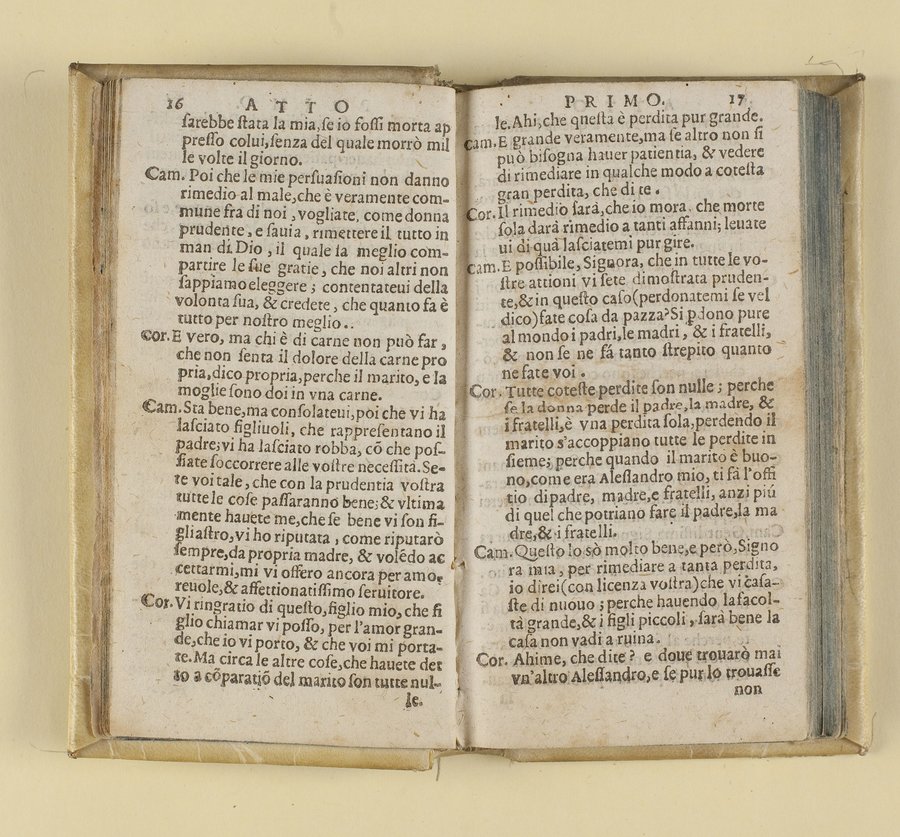 16 ATTO
ſarebbe ſtata la mia, ſe io foſſi morta ap
preſſo colui, ſenza del quale morrò mil
le volte il giorno.
Cam. Poi che le mie perſuaſioni non danno
rimedio al male, che è veramente com-
mune fra di noi, vogliate, come donna
prudente, e ſauia, rimettere il tutto in
man di Dio, il quale ſa meglio com-
partire le ſue gratie, che noi altri non
ſappiamo eleggere; contentateui della
volonta ſua, & credete, che quanto fa è
tutto per noſtro meglio..
Cor. E vero, ma chi è di carne non può far,
che non ſenta il dolore della carne pro
pria, dico propria, perche il marito, e la
moglie ſono doi in vna carne.
Cam. Sta bene, ma conſolateui, poi che vi ha
laſciato figliuoli, che rappreſentano il
padre; vi ha laſciato robba, cõ che poſ-
ſiate ſoccorrere alle voſtre neceſſità. Se-
te voi tale, che con la prudentia voſtra
tutte le coſe paſſaranno bene; & vltima
mente hauete me, che ſe bene vi ſon fi-
gliaſtro, vi ho riputata, come riputarò
ſempre, da propria madre, & volẽdo ac
cettarmi, mi vi offero ancora per amo-
reuole, & affettionatiſſimo ſeruitore.
Cor. Vi ringratio di queſto, figlio mio, che fi
glio chiamar vi poſſo, per l'amor gran-
de, che io vi porto, & che voi mi porta-
te. Ma circa le altre coſe, che hauete det
to a cõparatiõ del marito ſon tutte nul-
le.
PRIMO. 17
le. Ahi, che queſta è perdita pur grande.
Cam. E grande veramente, ma ſe altro non ſi
può biſogna hauer patientia, & vedere
di rimediare in qualche modo a coteſta
gran perdita, che di te.
Cor. Il rimedio ſarà, che io mora. che morte
ſola darà rimedio a tanti affanni; leuate
ui di quà laſciatemi pur gire.
Cam. E poſſibile, Signora, che in tutte le vo-
ſtre attioni vi ſete dimoſtrata pruden-
te, & in queſto caſo (perdonatemi ſe vel
dico) fate coſa da pazza? Si pdono pure
al mondo i padri, le madri, & i fratelli,
& non ſe ne fá tanto ſtrepito quanto
ne fate voi.
Cor. Tutte coteſte perdite ſon nulle; perche
ſe la donna perde il padre, la madre, &
i fratelli, è vna perdita ſola, perdendo il
marito s'accoppiano tutte le perdite in
ſieme; perche quando il marito è buo-
no, come era Aleſſandro mio, ti fà l'offi
tio di padre, madre, e fratelli, anzi più
di quel che potriano fare il padre, la ma
dre, & i fratelli.
Cam. Queſto lo sò molto bene, e però, Signo
ra mia, per rimediare a tanta perdita,
io direi (con licenza voſtra) che vi caſa-
ſte di nuouo; perche hauendo la facol-
tà grande, & i figli piccoli, ſarà bene la
caſa non vadi a ruina.
Cor. Ahime, che dite? e doue trouarò mai
vn'altro Aleſſandro, e ſe pur lo trouaſſe
non